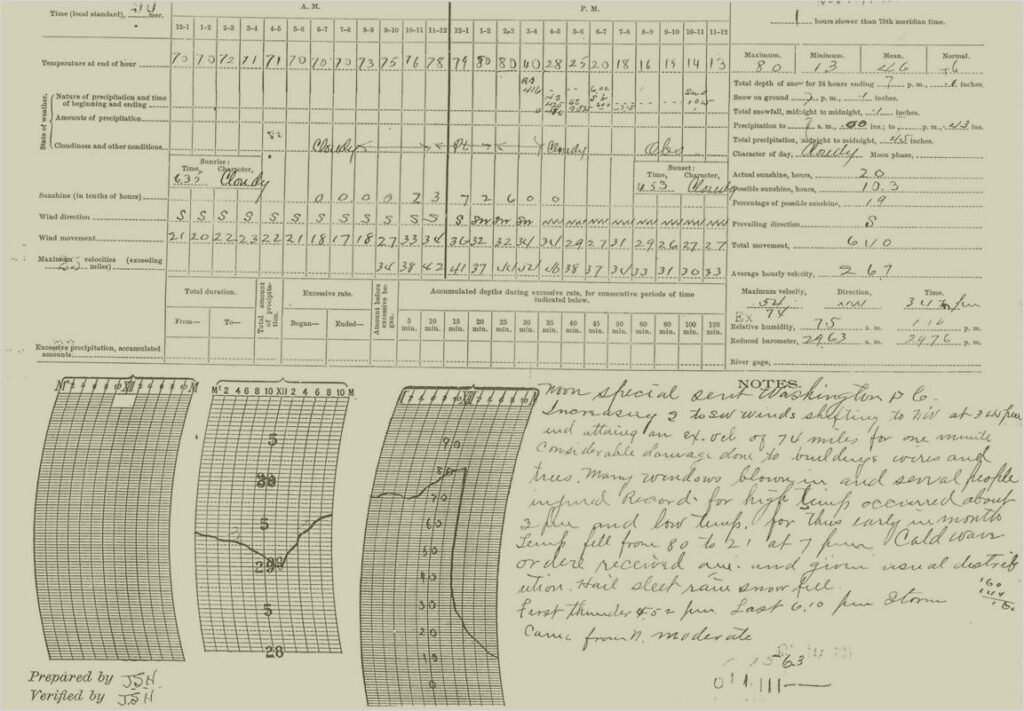 A. M. P. M.
Time (local standard), mer. 12-1 1-2 2-3 3-4 4-5 5-6 6-7 7-8 8-9 9-10 10-11 11-12 12-1 1-2 2-3 3-4 4-5 5-6 6-7 7-8 8-9 9-10 10-11 11-12
Temperature at end of hour 70 70 72 71 71 70 70 70 73 75 76 78 79 80 80 40 28 25 20 18 16 15 14 13
State of weather.
Nature of precipitation and time of beginning and ending
Amounts of precipitation
Cloudiness and other conditions Cloudy Pt Cloudy
Sunrise: Sunset:
Time, Character, Time, Character,
635 Cloudy 453 Cloudy
Sunshine (in tenths of hours) 0 0 0 0 2 3 7 2 6 0 0
Wind direction S S S S S S S S S S S S S SW SW SW NW NW NW NW NW NW NW NW
Wind movement 21 20 22 23 22 21 18 17 18 27 33 34 36 32 32 34 34 29 27 31 29 26 27 27
Maximum velocities (exceeding miles) 34 38 42 41 37 44 52 46 38 37 34 33 31 30 33
Total duration. Total amount of precipitation. Excessive rate. Amount before excessive began. Accumulated depths during excessive rate, for consecutive periods of time indicated below.
From— To— Began— Ended— 5 min. 10 min. 15 min. 20 min. 25 min. 30 min. 35 min. 40 min. 45 min. 50 min. 60 min. 80 min. 100 min. 120 min.
Excessive precipitation, accumulated amounts.
1 hours slower than 75th meridian time.
Maximum. Minimum. Mean. Normal.
80 13 46
Total depth of snow for 24 hours ending 7 p. m., .1 inches.
Snow on ground 7 p. m., .1 inches.
Total snowfall, midnight to midnight, .1 inches.
Precipitation to 7 a. m., .00 ins.; to p. m., .43 ins.
Total precipitation, midnight to midnight, .45 inches.
Character of day, Cloudy Moon phase,
Actual sunshine, hours, 2.0
Possible sunshine, hours, 10.3
Percentage of possible sunshine, 19
Prevailing direction, S
Total movement, 640
Average hourly velocity, 26.7
Maximum velocity, Direction, Time,
54 NW
Ex 74
Relative humidity, 75 a. m. p. m.
Reduced barometer, 29.63 a. m. 29.76 p. m.
River gage,
M 2 4 6 8 10 XII M
M 2 4 6 8 10 XII 2 4 6 8 10 M
2 4 6 8 10 XII 2 4 6 8 10
5
30
5
29
5
28
90
80
70
60
50
40
30
20
10
0
NOTES.
Noon special sent Washington D C.
Increasing S to SW winds shifting to NW at
and attaing an ex. vel of 74 miles for one minute
Considerable damage done to buildings wires and
trees. Many windows blown in and serval people
injured Record for high temp occurred about
3 pm and low temp. for this early in month
Temp fell from 80 to 21 at 7 pm Cold wave
orders received and given usual distrib
ution. Hail sleet rain snow fell.
First thunder 4.52 pm Last 6.10 pm Storm
Came from N. moderate
Prepared by JSH
Verified by JSH